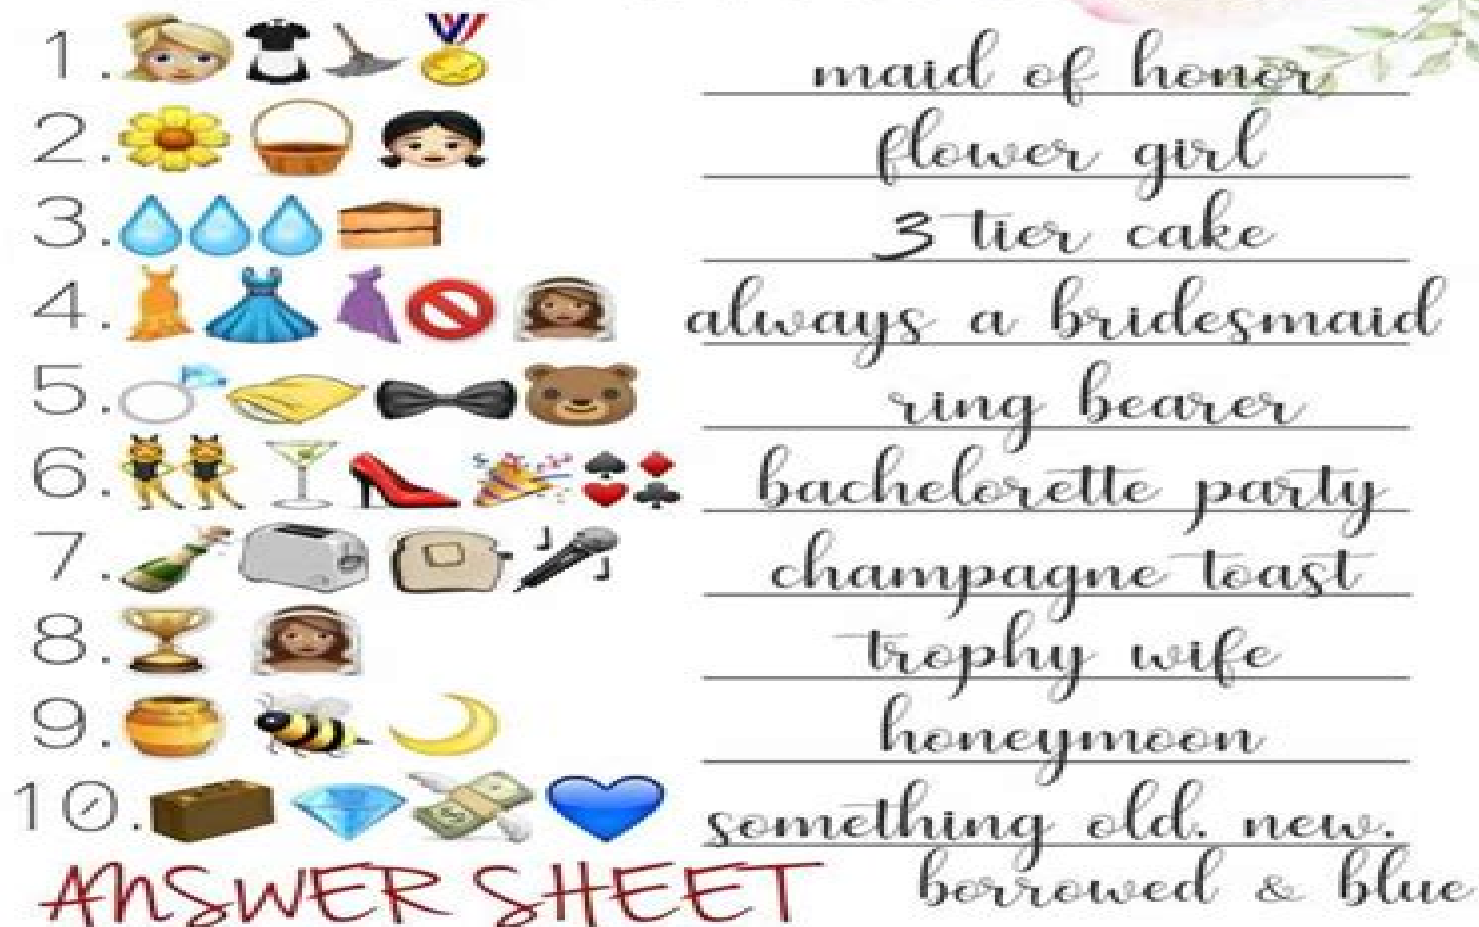 1. maid of honor
2. flower girl
3. 3 tier cake
4. always a bridesmaid
5. ring bearer
6. bachelorette party
7. champagne toast
8. trophy wife
9. honeymoon
10. something old. new.
borrowed & blue
ANSWER SHEET